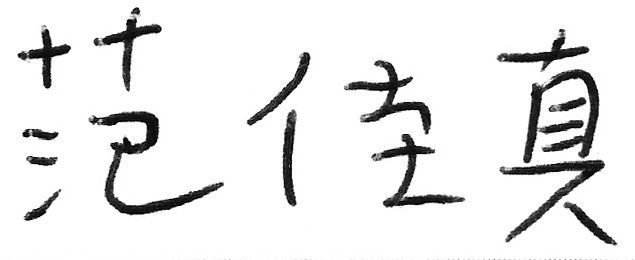 范佳真